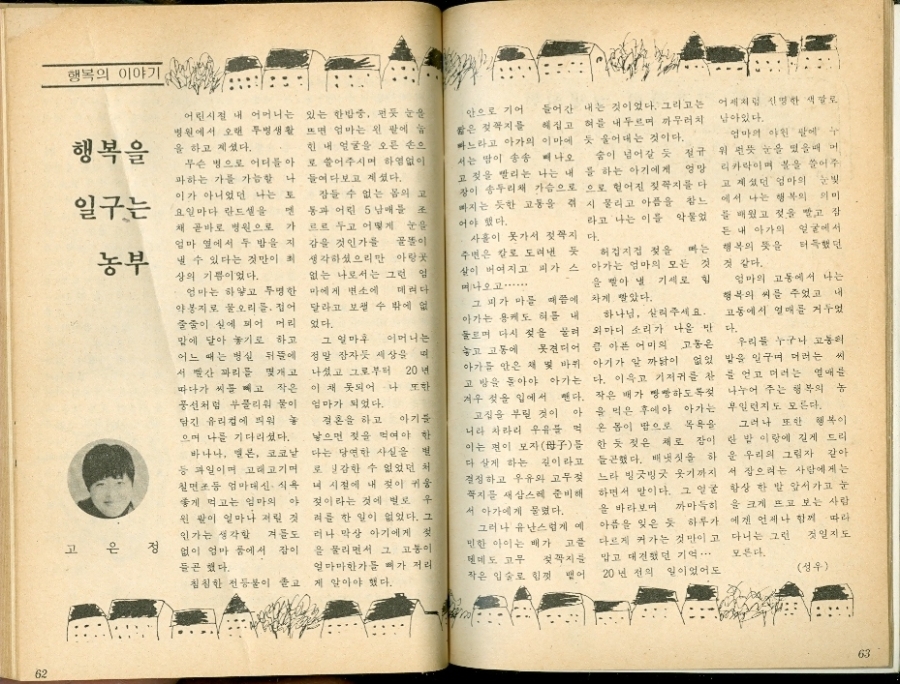 행복의 이야기
행복을
일구는
농부
고 은 정
어린시절 내 어머니는
병원에서 오랜 투병생활
을 하고 계셨다.
무슨 병으로 어디를 아
파하는 가를 가늠할 나
이가 아니었던 나는 토
요일마다 란드셀을 멘
채 곧바로 병원으로 가
엄마 옆에서 두 밤을 지
낼 수 있다는 것만이 최
상의 기쁨이었다.
엄마는 하얗고 투명한
약봉지로 물오리를 접어
줄줄이 실에 꿰어 머리
맡에 달아 놓기로 하고
어느 때는 병실 뒤뜰에
서 빨간 꽈리를 몇개고
따다가 씨를 빼고 작은
풍선처럼 부풀리워 물이
담긴 유리컵에 띄워 놓
으며 나를 기다리셨다.
바나나, 멜론, 코코낱
등 과일이며 고래고기며
칠면조등 엄마대신 식욕
좋게 먹고는 엄마의 야
윈 팔이 얼마나 저릴 것
인가는 생각할 겨를도
없이 엄마 품에서 잠이
들곤 했다.
침침한 전등불이 졸고
있는 한밤중, 펀듯 눈을
뜨면 엄마는 왼 팔에 눕
힌 내 얼굴을 오른 손으
로 쓸어주시며 하염없이
들여다보고 계셨다.
잠들 수 없는 몸의 고
통과 어린 5남매를 조
르르 두고 어떻게 눈을
감을 것인가를 골똘이
생각하셨으리만 아랑곳
없는 나로서는 그런 엄
마에게 변소에 데려다
달라고 보챌 수 밖에 없
었다.
그 얼마후 어머니는
정말 잠자듯 세상을 떠
나셨고 그로부터 20년
이 채 못되어 나 또한
엄마가 되었다.
결혼을 하고 아기를
낳으면 젖을 먹여야 한
다는 당연한 사실을 별
로 실감한 수 없었던 처
녀 시절에 내 젖이 귀울
젖이라는 것에 별로 우
려를 한 일이 없었다. 그
러나 막상 아기에게 젖
을 물리면서 그 고통이
얼마마한가를 뼈가 저리
게 알아야 했다.
안으로 기어 들어간
짧은 젖꼭지를 헤집고
빠느라고 아가의 이마에
서는 땀이 송송 배나오
고 젖을 빨리는 나는 내
장이 송두리채 가슴으로
빠지는 듯한 고통을 겪
어야 했다.
사흘이 못가서 젖꼭지
주변은 칼로 도려낸 듯
살이 벗겨지고 피가 스
며나오고……
그 피가 마를 때쯤에
아가는 용케도 혀를 내
둘르며 다시 젖을 물려
놓고 고통에 못견디어
아가를 안은 채 몇 바퀴
고 방을 돌아야 아가는
겨우 젖을 입에서 뺀다.
고집을 부릴 것이 아
니라 차라리 우유를 먹
이는 편이 모자(母子)를
다 살게 하는 길이라고
결정하고 우유와 고무젖
꼭지를 새삼스레 준비해
서 아가에게 물렸다.
그러나 유난스럽게 예
민한 아이는 배가 고플
텐데도 고무 젖꼭지를
작은 입술로 힘껏 뱉어
내는 것이었다. 그리고는
혀를 내두르며 까무러치
듯 울어대는 것이다.
숨이 넘어갈 듯 절규
를 하는 아기에게 엉망
으로 헐어진 젖꼭지를 다
시 물리고 아픔을 참느
라고 나는 이를 악물었
다.
허겁지겁 젖을 빠는
아가는 엄마의 모든 것
을 빨아 낼 기세로 힘
차게 빨았다.
하나님, 살려주세요.
외마디 소리가 나올 만
큼 아픈 어미의 고통은
아기가 알 까닭이 없었
다. 이윽고 기저귀를 찬
작은 배가 빵빵하도록젖
을 먹은 후에야 아가는
온 몸이 땀으로 목욕을
한 듯 젖은 채로 잠이
들곤했다. 배냇짓을 하
느라 빙긋빙긋 웃기까지
하면서 말이다. 그 얼굴
을 바라보며 까마득히
아픔을 잊은 듯 하루가
다르게 커가는 것만이 고
맙고 대견했던 기억…
20년 전의 일이었어도
어제처럼 선명한 색깔로
남아있다.
엄마의 야윈 팔에 누
워 펀뜻 눈을 떴을때 머
리카락이며 볼을 쓸어주
고 계셨던 엄마의 눈빛
에서 나는 행복의 의미
를 배웠고 젖을 빨고 잠
든 내 아가의 얼굴에서
행복의 뜻을 터득했던
것 같다.
엄마의 고통에서 나는
행복의 씨를 주었고 내
고통에서 열매를 거두었
다.
우리들 누구나 고통의
밭을 일구며 더러는 씨
를 얻고 더러는 열매를
나누어 주는 행복의 농
부일런지도 모른다.
그러나 또한 행복이
란 밭 이랑에 길게 드리
운 우리의 그림자 같아
서 잡으려는 사람에게는
항상 한 발 앞서가고 눈
을 크게 뜨고 보는 사람
에겐 언제나 함께 따라
다니는 그런 것일지도
모른다.
(성우)
62
63